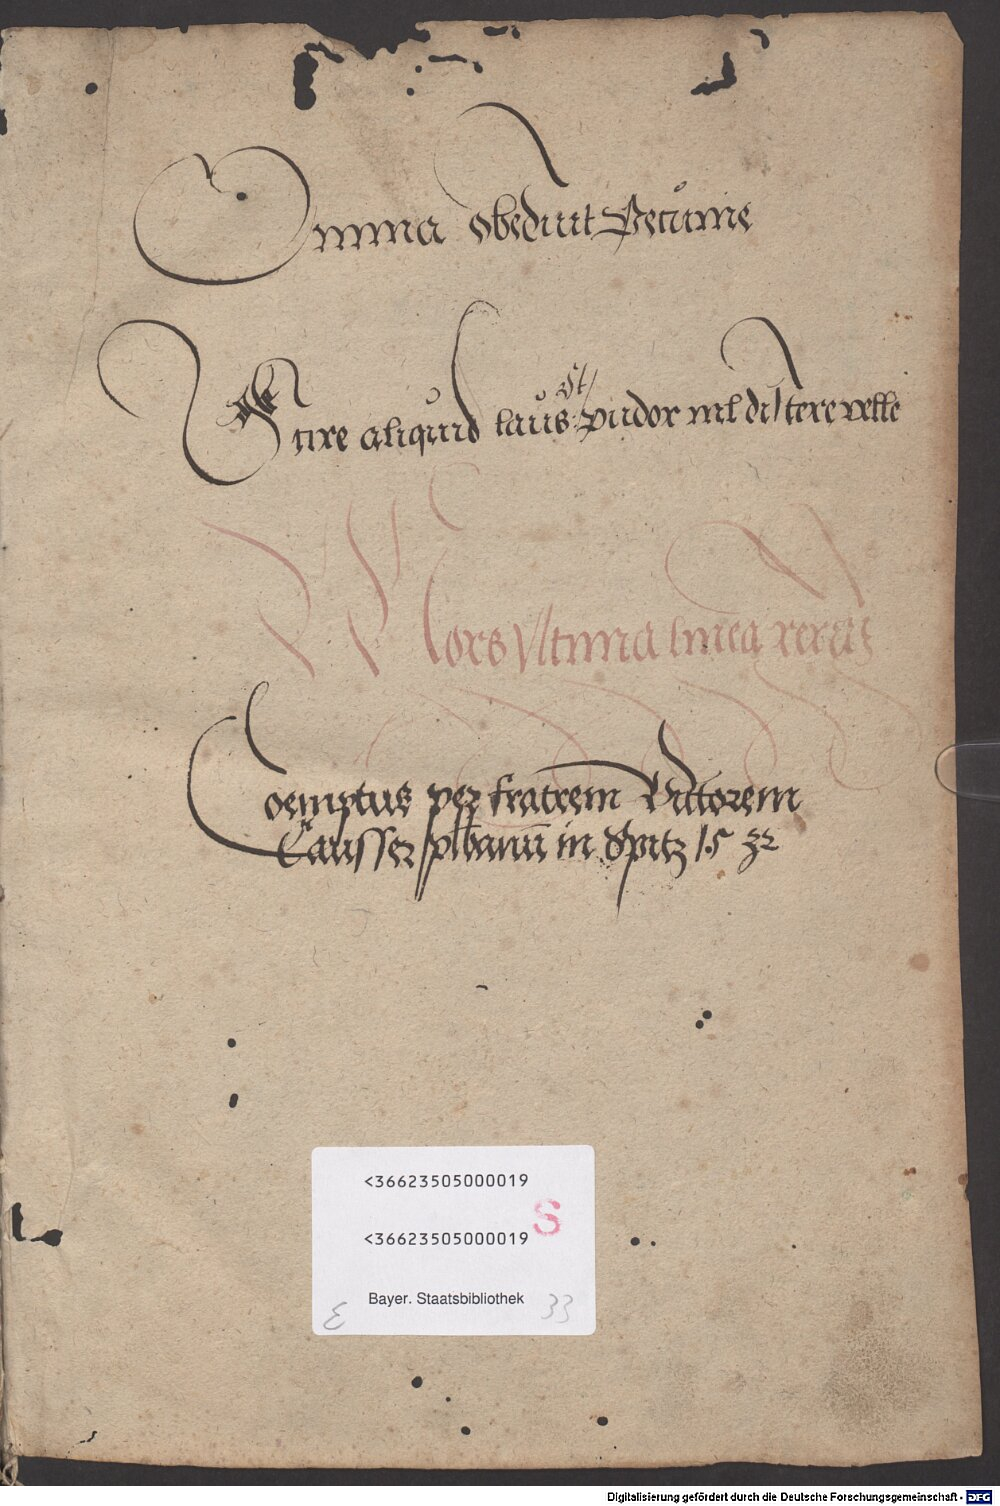 Omnia obediūt Pecūnie
Scire aliquid laus: st/ pudor nil discere velle
Mors vltima linea rerum
Coemptus per fratrem Victorem
plbanū in Spitz 1532
<36623505000019
S
<36623505000019
Bayer. Staatsbibliothek
33
Digitalisierung gefördert durch die Deutsche Forschungsgemeinschaft - DFG